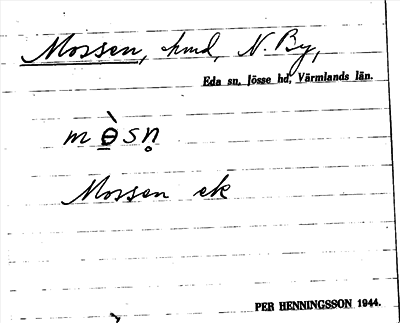 Mossen, hmd, N. By,
Eda sn, Jösse hd, Värmlands län.
mɵ̠̀sn̥
Mossen ek
PER HENNINGSSON 1944.